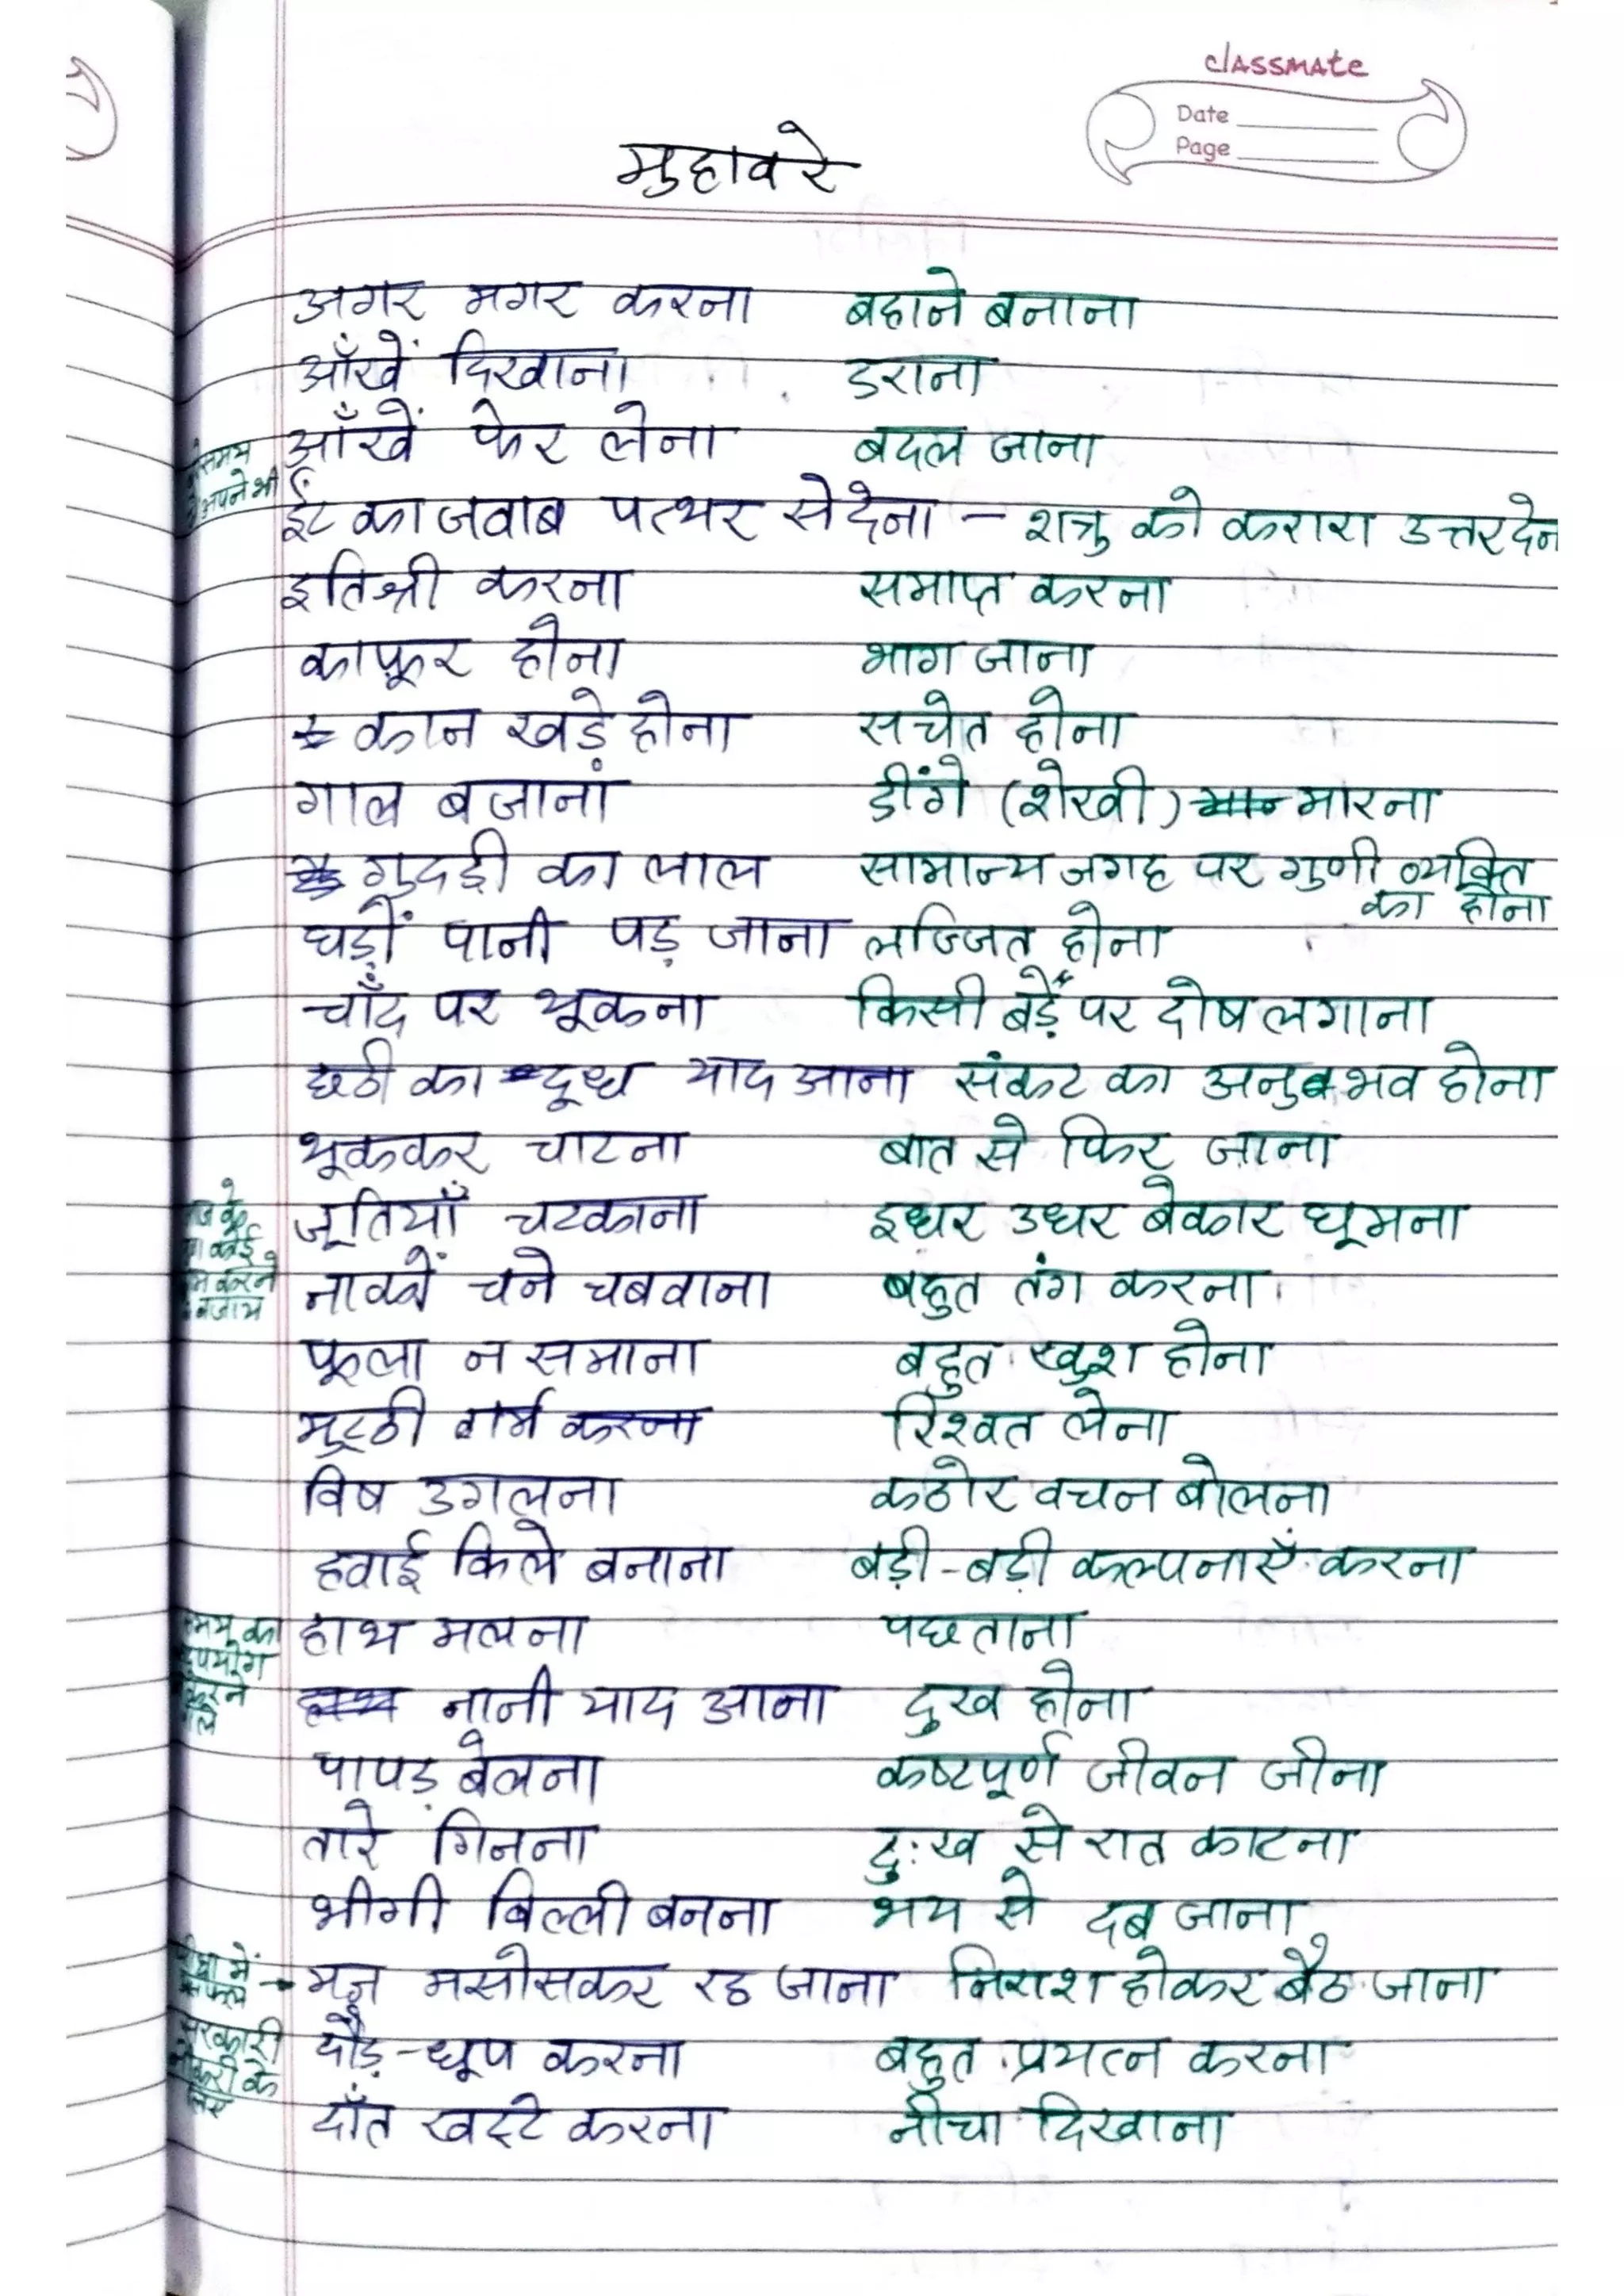 classmate
Date
Page
मुहावरे
अगर मगर करना बहाने बनाना
आँखें दिखाना डराना
आँखें फेर लेना बदल जाना
समय
अपने भी
ईंट का जवाब पत्थर से देना - शत्रु को करारा उत्तर देन
इतिश्री करना समाप्त करना
काफ़ूर होना भाग जाना
कान खड़े होना सचेत होना
गाल बजाना डींगे (शेखी) मारना
गुदड़ी का लाल सामान्य जगह पर गुणी व्यक्ति
का होना
घड़ों पानी पड़ जाना लज्जित होना
चाँद पर थूकना किसी बड़ें पर दोष लगाना
छठी का दूध याद आना संकट का अनुभव होना
थूककर चाटना बात से फिर जाना
के
जूतियाँ चटकाना इधर उधर बेकार घूमना
कोई
करने
नाकों चने चबवाना बहुत तंग करना
बजाय
फूला न समाना बहुत खुश होना
मुट्ठी गर्म करना रिश्वत लेना
विष उगलना कठोर वचन बोलना
हवाई किले बनाना बड़ी-बड़ी कल्पनाएँ करना
का
हाथ मलना पछताना
नानी याद आना दुख होना
पापड़ बेलना कष्टपूर्ण जीवन जीना
तारे गिनना दुःख से रात काटना
भीगी बिल्ली बनना भय से दब जाना
में
मन मसोसकर रह जाना निराश होकर बैठ जाना
सरकारी
दौड़-धूप करना बहुत प्रयत्न करना
के
लिए
दाँत खट्टे करना नीचा दिखाना